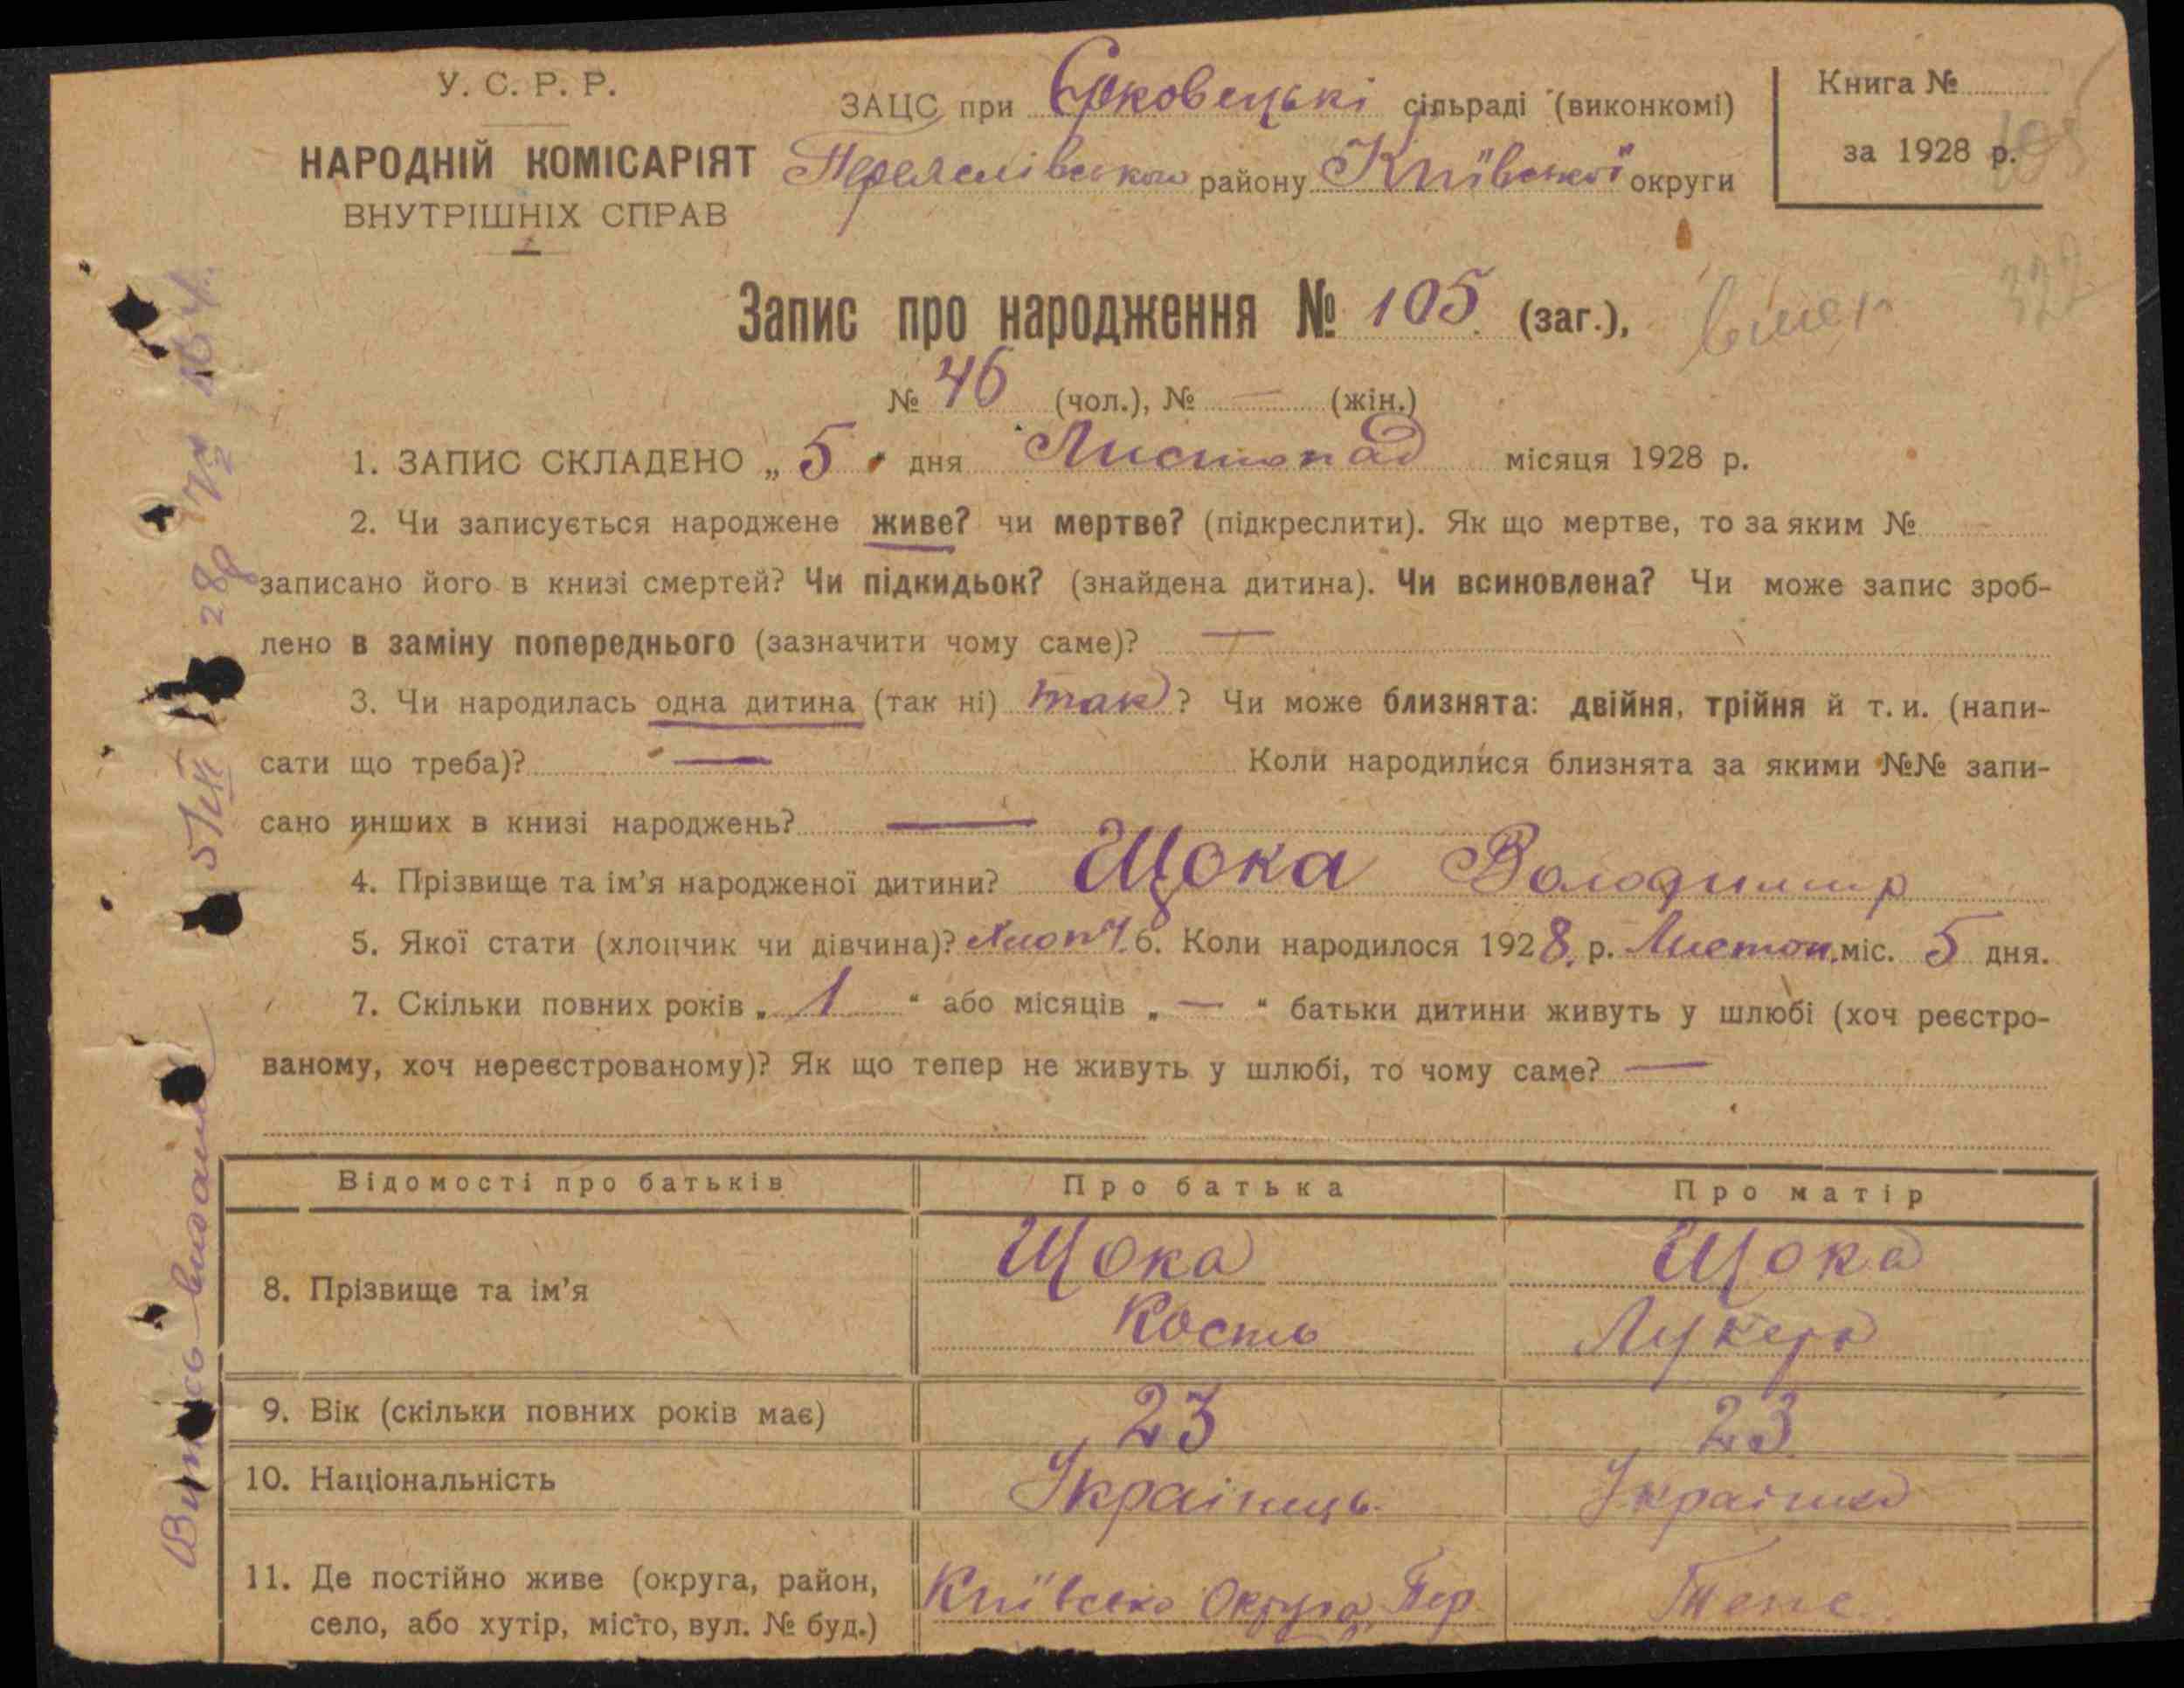 У. С. Р. Р.
НАРОДНІЙ КОМІСАРІЯТ
ВНУТРІШНІХ СПРАВ
ЗАЦС при Єрковецькі сільраді (виконкомі)
Переяслівського району Київської округи
Книга №
за 1928 р.
105
332
Запис про народження № 105 (заг.),
№ 46 (чол.), № — (жін.)
1. ЗАПИС СКЛАДЕНО „ 5 " дня Листопад місяця 1928 р.
2. Чи записується народжене живе? чи мертве? (підкреслити). Як що мертве, то за яким №
записано його в книзі смертей? Чи підкидьок? (знайдена дитина). Чи всиновлена? Чи може запис зроб-
лено в заміну попереднього (зазначити чому саме)? —
3. Чи народилась одна дитина (так ні) так? Чи може близнята: двійня, трійня й т. и. (напи-
сати що треба)? — Коли народилися близнята за якими №№ запи-
сано инших в книзі народжень? —
4. Прізвище та ім'я народженої дитини? Щока Володимир
5. Якої стати (хлопчик чи дівчина)? хлопч. 6. Коли народилося 1928. р. Листоп. міс. 5 дня.
7. Скільки повних років „ 1 " або місяців „ — " батьки дитини живуть у шлюбі (хоч реєстро-
ваному, хоч нереєстрованому)? Як що тепер не живуть у шлюбі, то чому саме? —
Відомості про батьків Про батька Про матір
8. Прізвище та ім'я Щока Щока
Кость Лукера
9. Вік (скільки повних років має) 23 23
10. Національність Українець Українка
11. Де постійно живе (округа, район, Київська Округа, Пер. Теж
село, або хутір, місто, вул. № буд.)
Випись видана